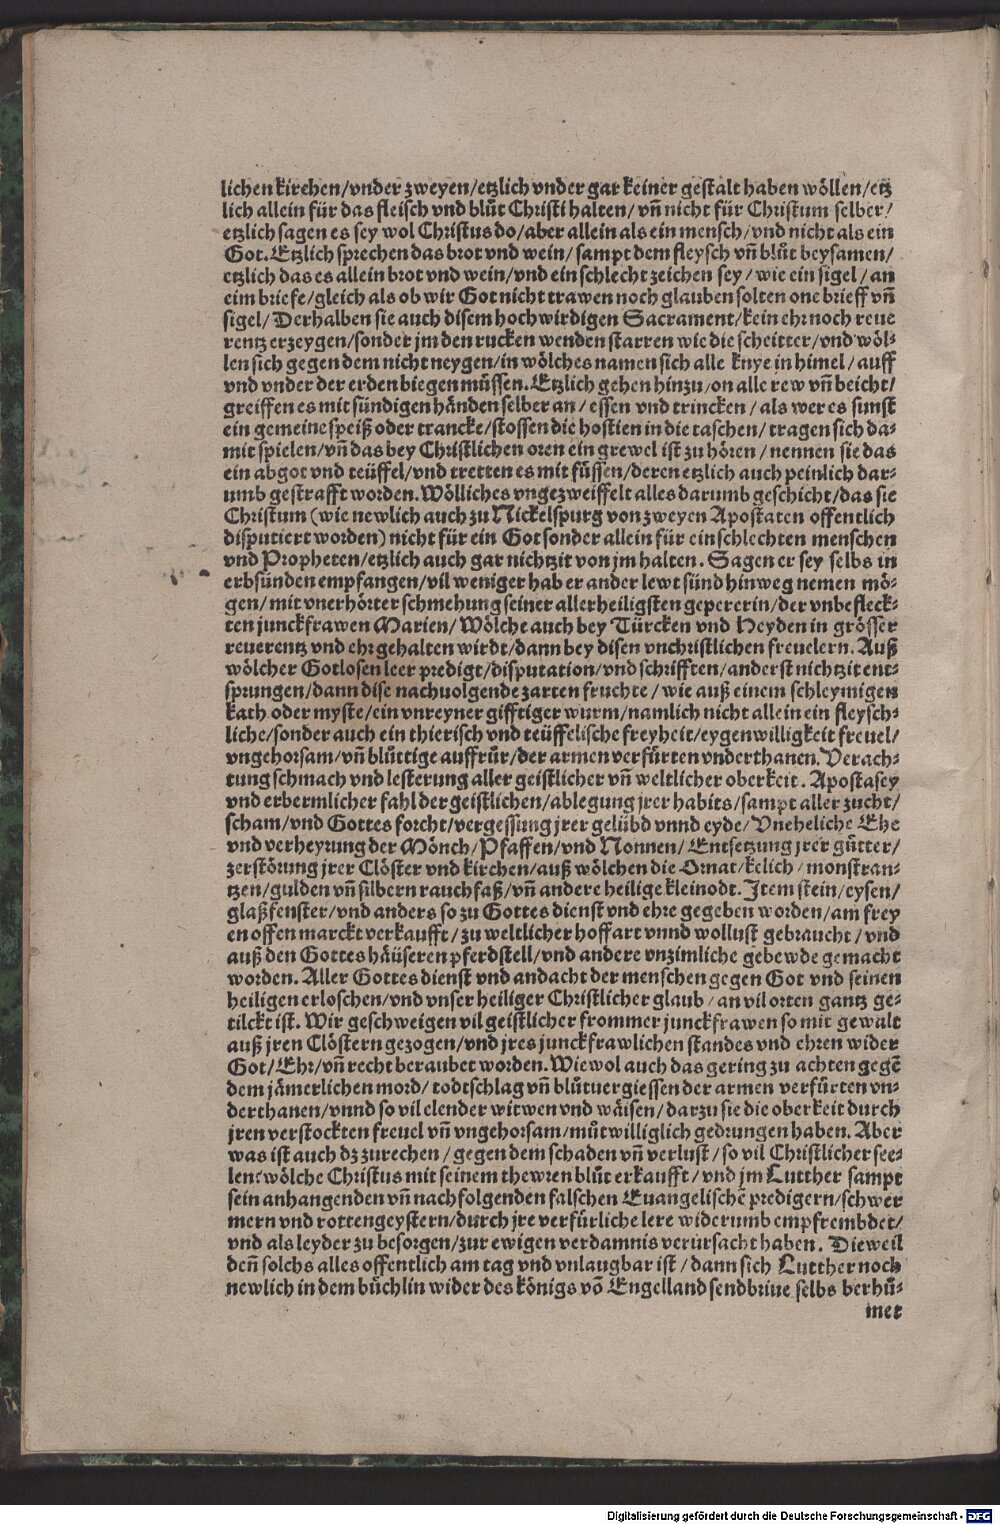 lichen kirchen/vnder zweyen/etzlich vnder gar keiner gestalt haben wöllen/etz
lich allein für das fleisch vnd blůt Christi halten/ vñ nicht für Christum selber/
etzlich sagen es sey wol Christus do/aber allein als ein mensch/vnd nicht als ein
Got. Etzlich sprechen das brot vnd wein/ sampt dem fleysch vñ blůt beysamen/
etzlich das es allein brot vnd wein/vnd ein schlecht zeichen sey/ wie ein sigel/ an
eim briefe/gleich als ob wir Got nicht trawen noch glauben solten one brieff vñ
sigel/ Derhalben sie auch disem hochwirdigen Sacrament/kein ehr noch reue
rentz erzeygen/sonder jm den rucken wenden starren wie die scheitter/vnd wöl-
len sich gegen dem nicht neygen/in wölches namen sich alle knye in himel/ auff
vnd vnder der erden biegen müssen. Etzlich gehen hinzu/on alle rew vñ beicht/
greiffen es mit sündigen händen selber an/ essen vnd trincken/ als wer es sunst
ein gemeine speiß oder trancke/stossen die hostien in die taschen/ tragen sich da-
mit spielen/vñ das bey Christlichen oren ein grewel ist zu hören/ nennen sie das
ein abgot vnd teüffel/vnd tretten es mit füssen/deren etzlich auch peinlich dar-
umb gestrafft worden. Wölliches vngezweiffelt alles darumb geschicht/das sie
Christum (wie newlich auch zu Nickelspurg von zweyen Apostaten offentlich
disputiert worden) nicht für ein Got sonder allein für ein schlechten menschen
vnd Propheten/etzlich auch gar nichtzit von jm halten. Sagen er sey selbs in
erbsünden empfangen/vil weniger hab er ander lewt sünd hinweg nemen mö-
gen/mit vnerhörter schmehung seiner allerheiligsten gepererin/der vnbefleck-
ten junckfrawen Marien/ Wölche auch bey Türcken vnd Heyden in grösser
reuerentz vnd ehr gehalten wirdt/dann bey disen vnchristlichen freuelern. Auß
wölcher Gotlosen leer predigt/disputation/vnd schrifften/anderst nichtzit ent-
sprungen/dann dise nachuolgende zarten fruchte/ wie auß einem schleymigen
kath oder myste/ein vnreyner gifftiger wurm/namlich nicht allein ein fleysch-
liche/sonder auch ein thierisch vnd teüffelische freyheit/eygenwilligkeit freuel/
vngehorsam/vñ blůttige auffrůr/der armen verfürten vnderthanen. Verach-
tung schmach vnd lesterung aller geistlicher vñ weltlicher oberkeit. Apostasey
vnd erbermlicher fahl der geistlichen/ablegung jrer habits/sampt aller zucht/
scham/vnd Gottes forcht/vergessung jrer gelübd vnnd eyde/ Vneheliche Ehe
vnd verheyrung der Mönch/Pfaffen/vnd Nonnen/ Entsetzung jrer gütter/
zerstörung jrer Clöster vnd kirchen/auß wölchen die Ornat/kelich/ monstran-
tzen/gulden vñ silbern rauchfaß/vñ andere heilige kleinodt. Item stein/eysen/
glaßfenster/vnd anders so zu Gottes dienst vnd ehre gegeben worden/am frey
en offen marckt verkaufft/zu weltlicher hoffart vnnd wollust gebraucht/vnd
auß den Gottes häüseren pferdstell/vnd andere vnzimliche gebewde gemacht
worden. Aller Gottes dienst vnd andacht der menschen gegen Got vnd seinen
heiligen erloschen/vnd vnser heiliger Christlicher glaub/an vil orten gantz ge-
tilckt ist. Wir geschweigen vil geistlicher frommer junckfrawen so mit gewalt
auß jren Clöstern gezogen/vnd jres junckfrawlichen standes vnd ehren wider
Got/Ehr/vñ recht beraubet worden. Wiewol auch das gering zu achten gegẽ
dem jämerlichen mord/todtschlag vñ blůtuergiessen der armen verfürten vn-
derthanen/vnnd so vil elender witwen vnd wäisen/darzu sie die oberkeit durch
jren verstockten freuel vñ vngehorsam/můtwilliglich gedrungen haben. Aber
was ist auch dz zurechen/ gegen dem schaden vñ verlust/so vil Christlicher see-
len: wölche Christus mit seinem thewren blůt erkaufft/vnd jm Lutther sampt
sein anhangenden vñ nachfolgenden falschen Euangelischẽ predigern/schwer
mern vnd rottengeystern/durch jre verfürliche lere widerumb empfrembdet/
vnd als leyder zu besorgen/zur ewigen verdamnis verursacht haben. Dieweil
deñ solchs alles offentlich am tag vnd vnlaugbar ist/dann sich Lutther noch
newlich in dem büchlin wider des königs võ Engelland sendbriue selbs berhü-
met
Digitalisierung gefördert durch die Deutsche Forschungsgemeinschaft - DFG